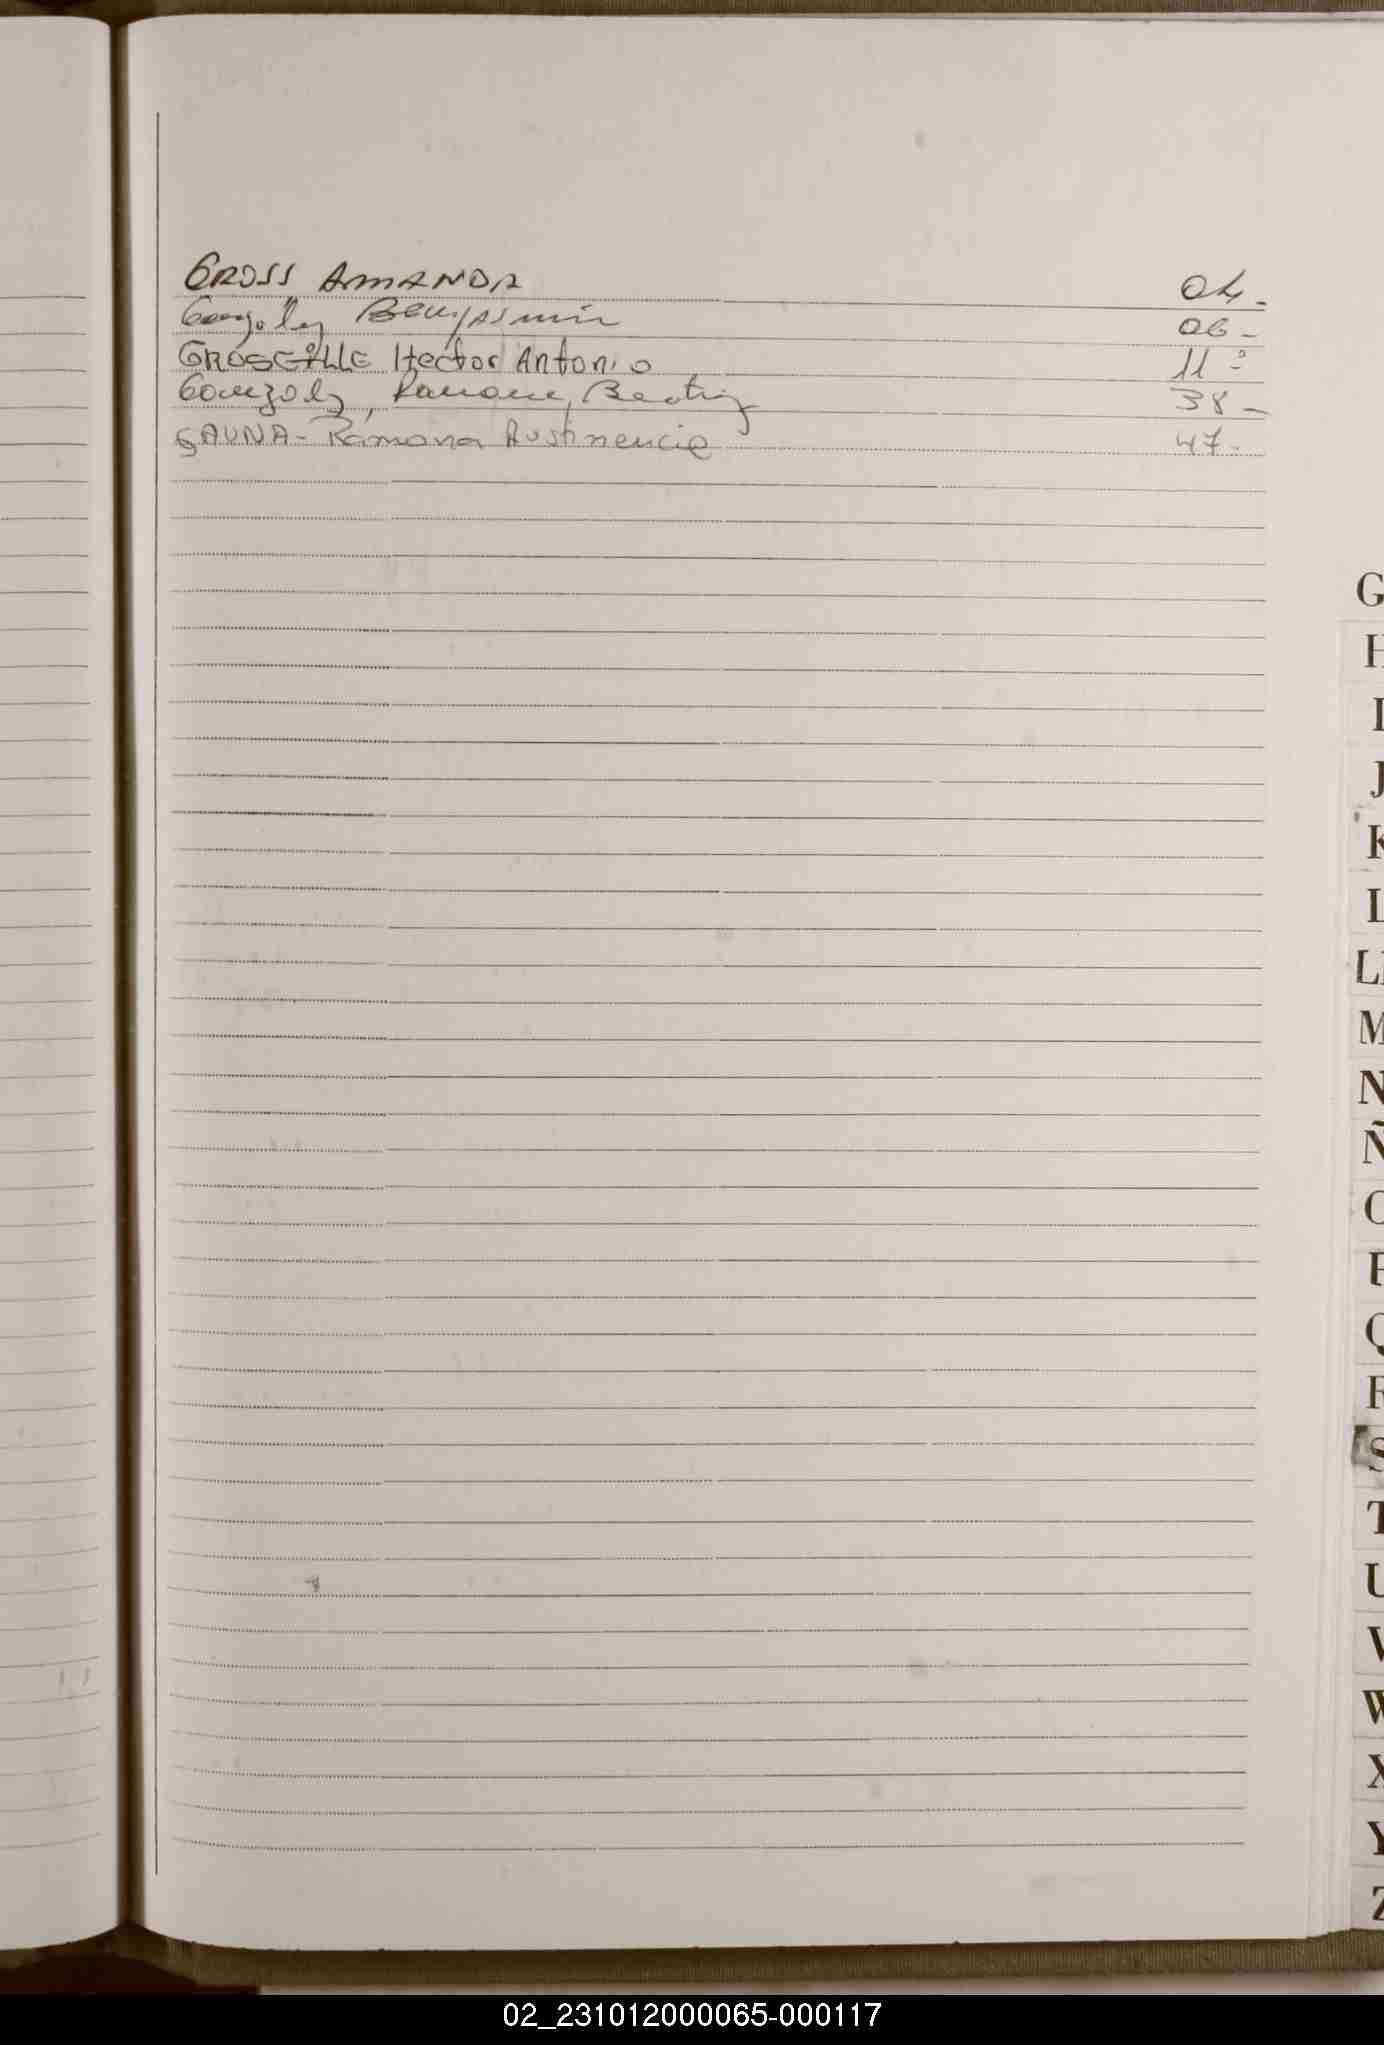 GROSS AMANDA 04.
Gonzalez Benjasmin 06-
GROSEILLE Hector Antonio 11-
Gonzalez, Ramona, Beatriz 38-
GAUNA- Ramona 47-
G
H
I
J
K
L
LL
M
N
Ñ
O
P
Q
R
S
T
U
V
W
X
Y
Z
02_231012000065-000117